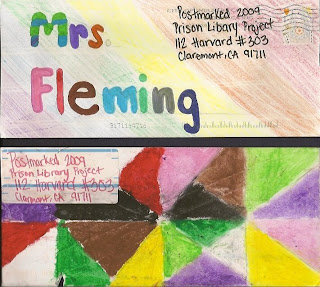 Mrs.
Fleming
Postmarked 2009
Prison Libary Project
112 Harvard #303
Claremont, CA 91711
Postmarked 2009
Prison Library Project
112 Harvard #303
Clarmont, CA 91711